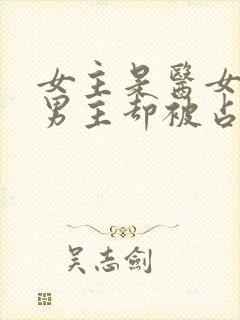 女主是醫女
男主却被占
吴志劍